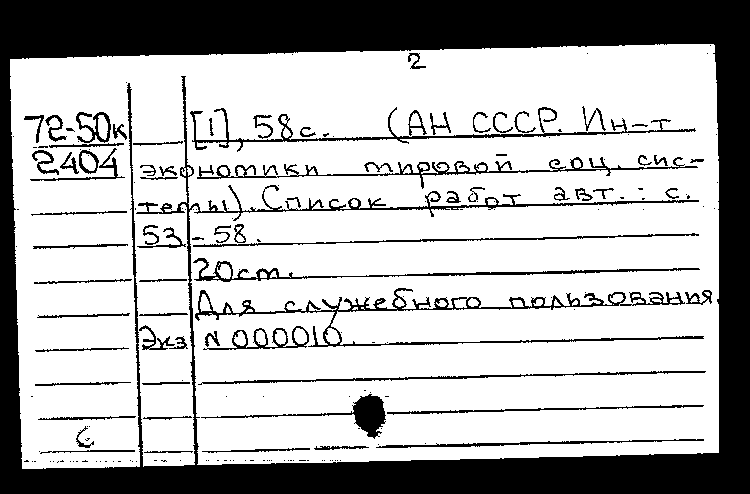 2
72-50к [1], 58с. (АН СССР. Ин-т
2404 экономики мировой соц. сис-
темы). Список работ авт.: с.
53-58.
20см.
Для служебного пользования.
Экз N 000010.